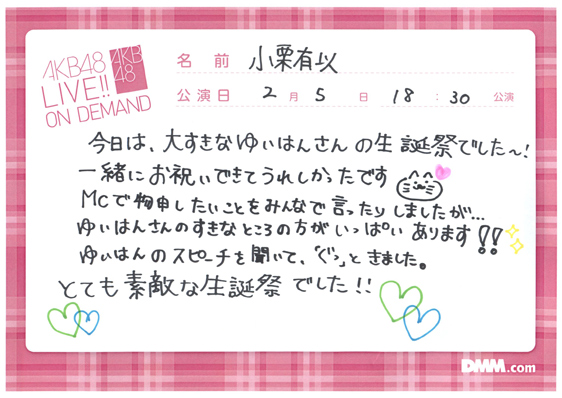 AKB48
LIVE!!
ON DEMAND
AKB
48
名前 小栗有以
公演日 2月5日 18:30 公演
今日は、大すきなゆいはんさんの生誕祭でした〜!
一緒にお祝いできてうれしかったです
MCで物申したいことをみんなで言ったりしましたが...
ゆいはんさんのすきなところの方がいっぱいあります!!
ゆいはんのスピーチを聞いて、「ぐっ」ときました。
とても素敵な生誕祭でした!!
DMM.com